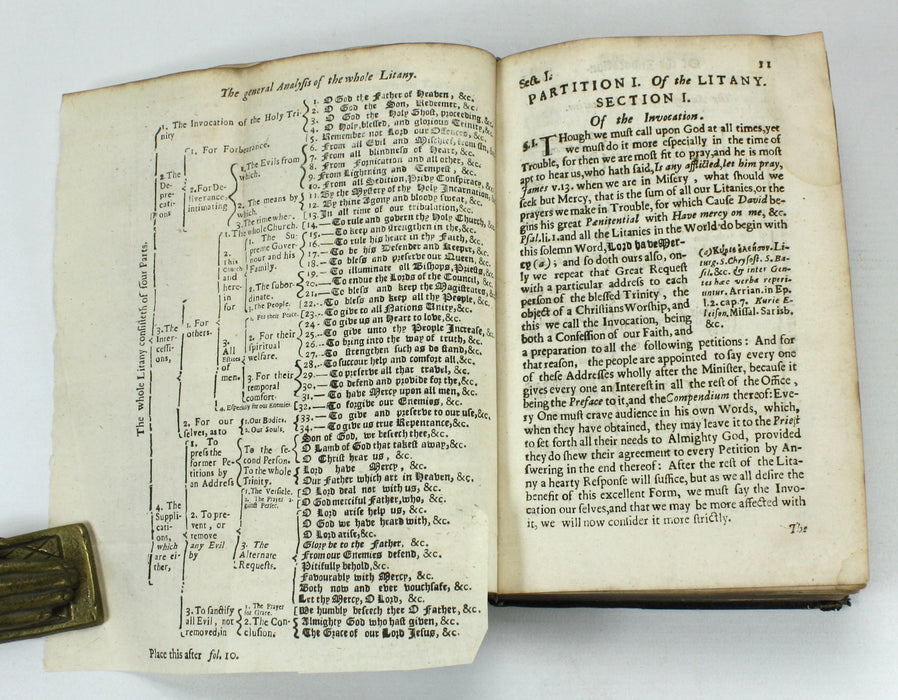 The general Analysis of the whole Litany.
The whole Litany consisteth of four Parts.
1. The Invocation of the Holy Trinity
1. O God the Father of Heaven, &c.
2. O God the Son, Redeemer, &c.
3. O God the Holy Ghost, proceeding, &c.
4. O Holy, blessed, and glorious Trinity, &c.
2. The Deprecations
1. For Forbearance.
5. Remember not Lord our Offences, &c.
2. For Deliverance, intimating
1. The Evils from which.
6. From all Evil and Mischief, from sin,
7. From all blindness of Heart, &c.
8. From Fornication and all other, &c.
9. From Lightning and Tempest, &c.
10. From all Sedition, Privy Conspiracy, &c.
2. The means by which.
11. By the Mystery of thy Holy Incarnation,
12. By thine Agony and bloody sweat, &c.
3. The time when.
13. In all time of our tribulation, &c.
3. The Intercessions,
1. For others.
1. The whole Church.
14.—To rule and govern thy Holy Church,
2. This Church and herein for
1. The Supreme Governour and his Family.
15.—To keep and strengthen in the, &c.
16.—To rule his heart in thy Faith, &c.
17.—To be his Defender and Keeper, &c.
18.—To bless and preserve our Queen, &c.
2. The subordinate.
19.—To illuminate all Bishops, Priests, &c.
20.—To endue the Lords of the Council, &c.
21.—To bless and keep the Magistrates, &c.
3. The People.
22.—To bless and keep all thy People, &c.
3. All Estates of men.
1. For their Peace.
23.—To give to all Nations Unity, &c.
2. For their spiritual welfare.
24.—To give us an Heart to love, &c.
25.—To give unto thy People Increase, &c.
26.—To bring into the way of truth, &c.
27.—To strengthen such as do stand, &c.
3. For their temporal comfort.
28.—To succour help and comfort all, &c.
29.—To preserve all that travel, &c.
30.—To defend and provide for the, &c.
31.—To have Mercy upon all men, &c.
4. Especially for our Enemies.
32.—To forgive our Enemies, &c.
2. For our selves, as to
1. Our Bodies.
33.—To give and preserve to our use, &c.
2. Our Souls.
34.—To give us true Repentance, &c.
4. The Supplications, which are either,
1. To press the former Petitions by an Address
To the second Person.
Son of God, we beseech thee, &c.
O Lamb of God that takest away, &c.
O Christ hear us, &c.
To the whole Trinity.
Lord have Mercy, &c.
Our Father which art in Heaven, &c.
2. To prevent, or remove any Evil by
1. The Versicle.
O Lord deal not with us, &c.
2. The Prayer against Persec.
O God merciful Father, who, &c.
3. The Alternate Requests.
O Lord arise help us, &c.
O God we have heard with, &c.
O Lord arise, &c.
Glory be to the Father, &c.
From our Enemies defend, &c.
Pitifully behold, &c.
Favourably with Mercy, &c.
Both now and ever vouchsafe, &c.
Let thy Mercy, O Lord, &c.
3. To sanctify all Evil, not removed, in
1. The Prayer for Grace.
We humbly beseech thee O Father, &c.
2. The Conclusion.
Almighty God who hast given, &c.
The Grace of our Lord Jesus, &c.
Place this after fol. 10.
Sect. I. 11
PARTITION I. Of the LITANY.
SECTION I.
Of the Invocation.
§.1. THough we must call upon God at all times, yet
we must do it more especially in the time of
Trouble, for then we are most fit to pray, and he is most
apt to hear us, who hath said, Is any afflicted, let him pray,
James v.13. when we are in Misery, what should we
seek but Mercy, that is the sum of all our Litanies, or the
prayers we make in Trouble, for which Cause David be-
gins his great Penitential with Have mercy on me, &c.
Psal. li. 1. and all the Litanies in the World do begin with
this solemn Word, Lord have Mer-
cy (a); and so doth ours also, on-
ly we repeat that Great Request
with a particular address to each
person of the blessed Trinity, the
object of a Christians Worship, and
this we call the Invocation, being
both a Confession of our Faith, and
(a) Κύριε ἐλέησον. Li-
turg. S. Chrysost. S. Ba-
sil. &c. & inter Gen-
tes hæc verba reperi-
untur. Arrian. in Ep.
l. 2. cap. 7. Kurie E-
leison, Missal. Sarisb,
&c.
a preparation to all the following petitions: And for
that reason, the people are appointed to say every one
of these Addresses wholly after the Minister, because it
gives every one an Interest in all the rest of the Office,
being the Preface to it, and the Compendium thereof: Eve-
ry One must crave audience in his own Words, which,
when they have obtained, they may leave it to the Priest
to set forth all their needs to Almighty God, provided
they do shew their agreement to every Petition by An-
swering in the end thereof: After the rest of the Lita-
ny a hearty Response will suffice, but as we all desire the
benefit of this excellent Form, we must say the Invo-
cation our selves, and that we may be more affected with
it, we will now consider it more strictly.
The